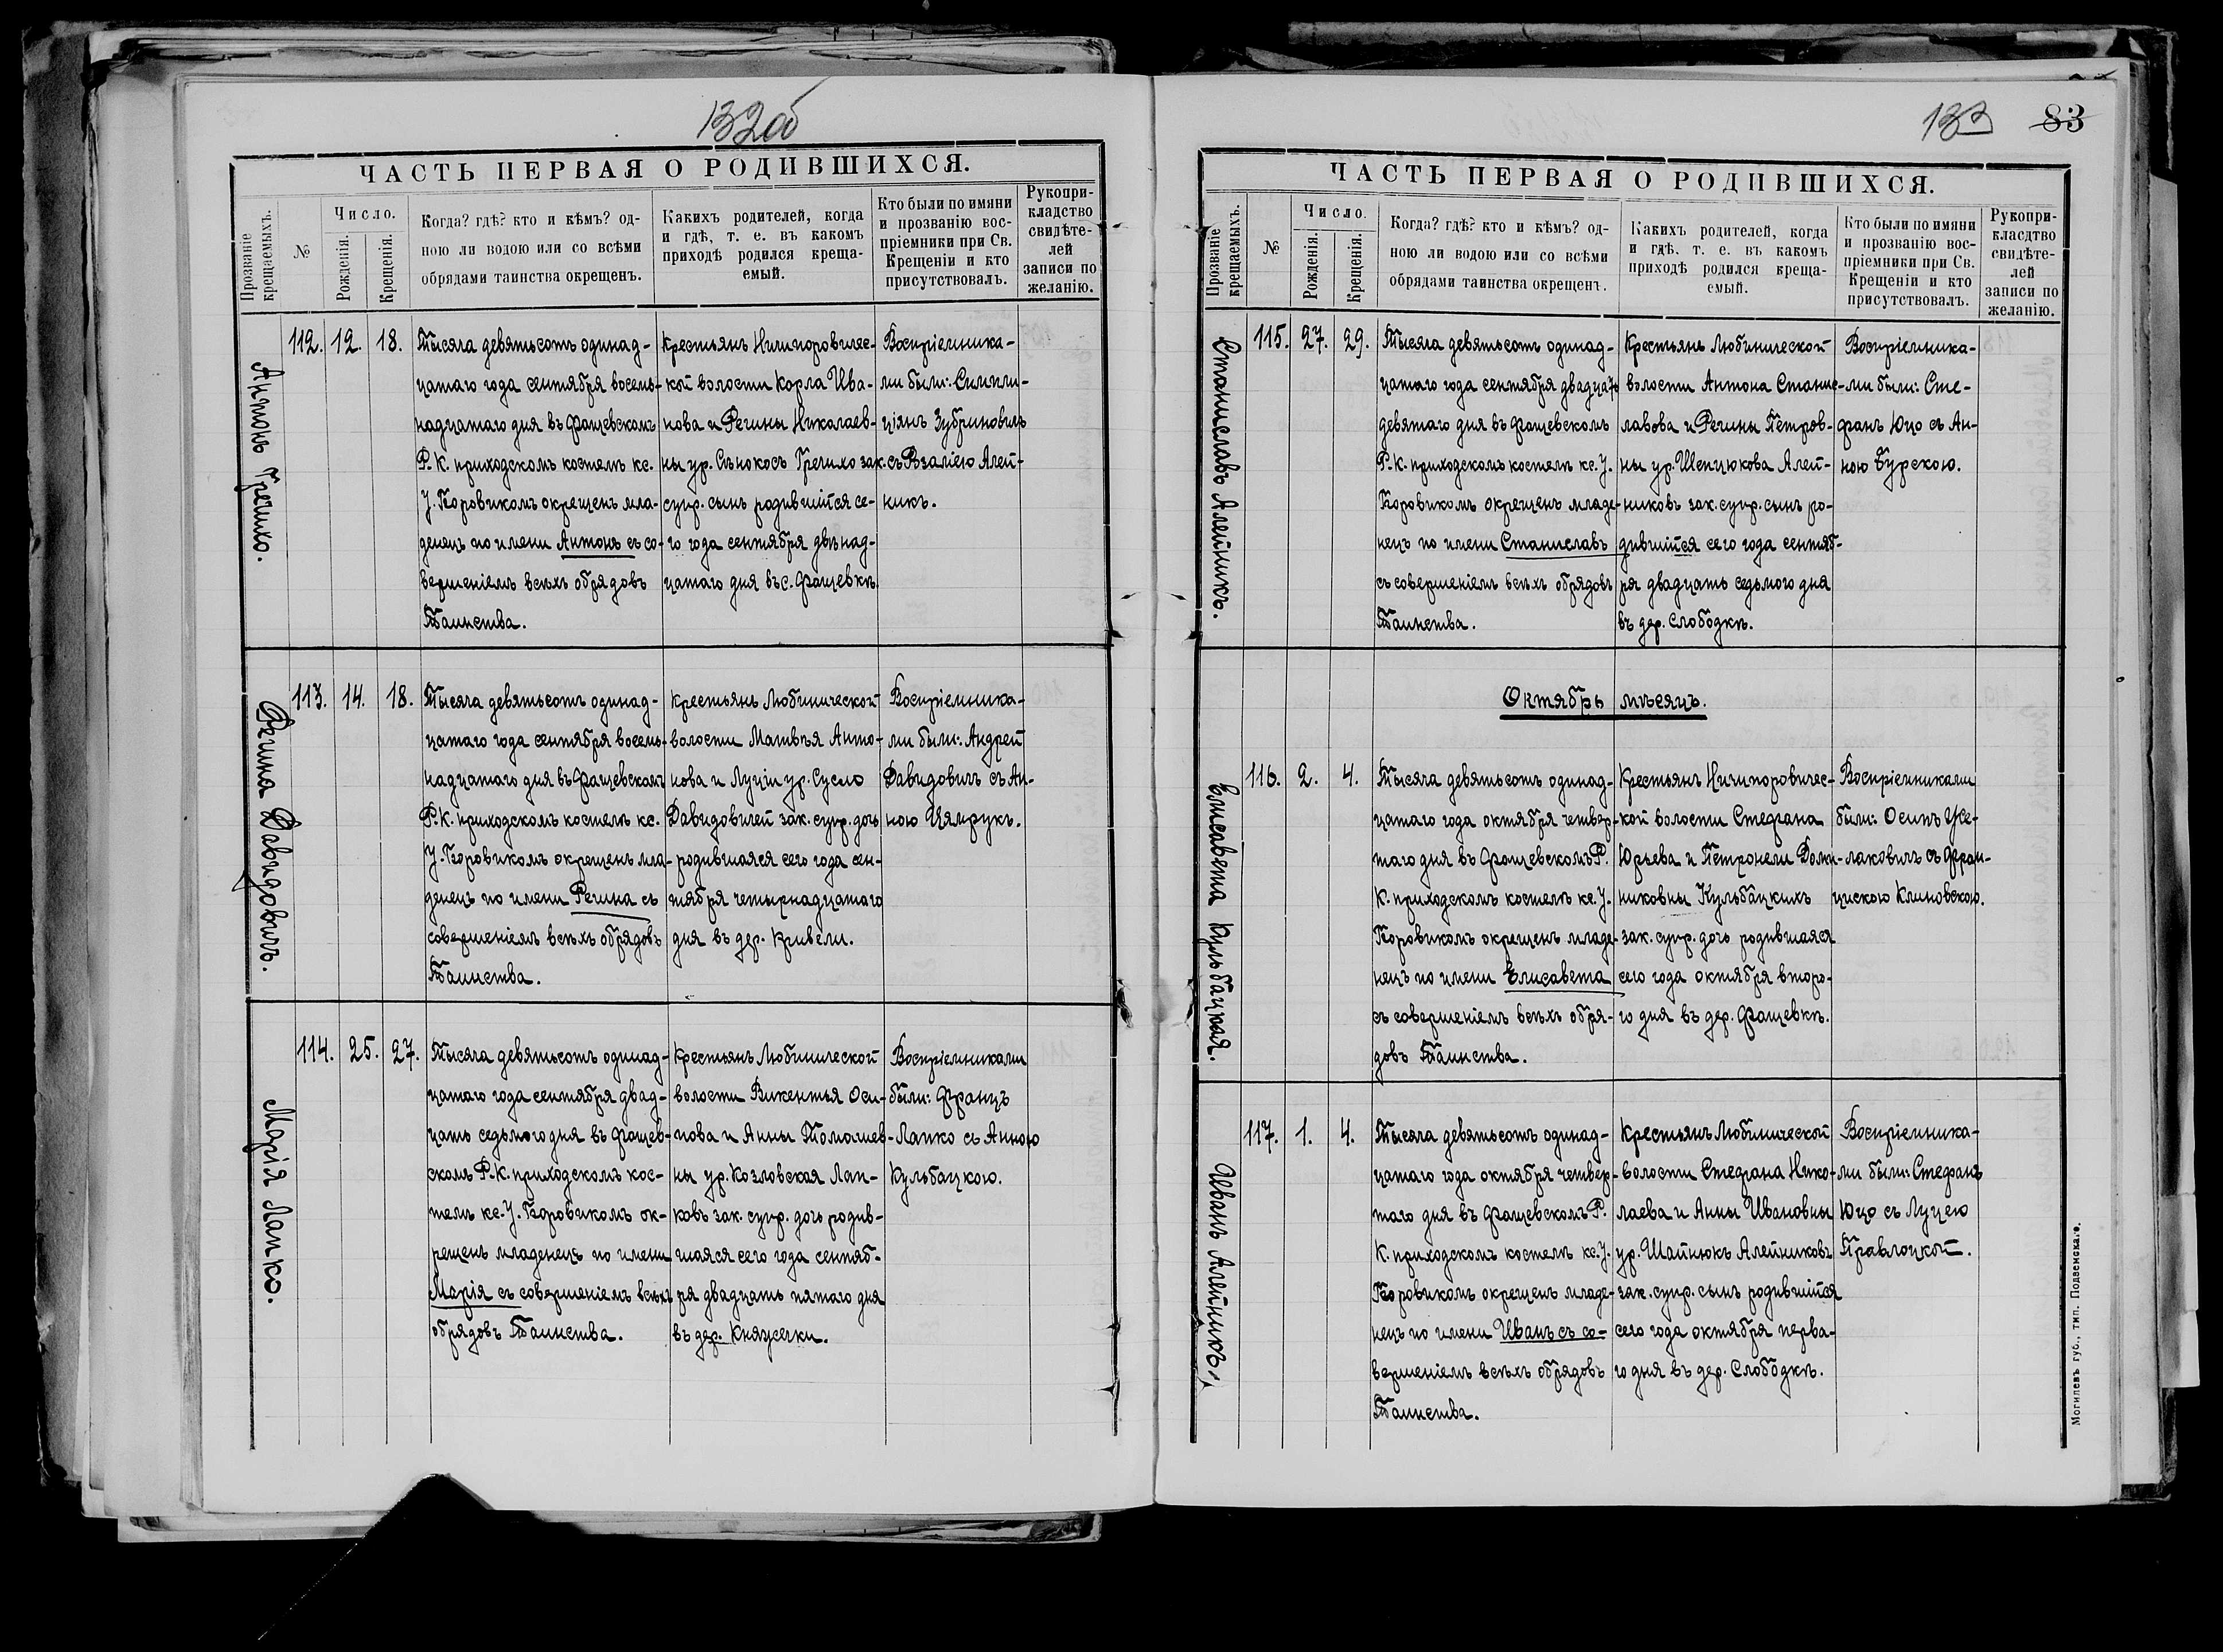 132об
ЧАСТЬ ПЕРВАЯ О РОДИВШИХСЯ.
Прозваніе крещаемыхъ.
№
Число.
Рожденія.
Крещенія.
Когда? гдѣ? кто и кѣмъ? од-
ною ли водою или со всѣми
обрядами таинства окрещенъ.
Какихъ родителей, когда
и гдѣ, т. е. въ какомъ
приходѣ родился креща-
емый.
Кто были по имяни
и прозванію вос-
пріемники при Св.
Крещеніи и кто
присутствовалъ.
Рукопри-
кладство
свидѣте-
лей
записи по
желанію.
Антонъ Гречихо.
112. 12. 18.
Тысяча девятьсотъ одинад-
цатаго года сентября восемь-
надцатаго дня въ Фащевскомъ
Р. К. приходскомъ костелѣ кс.
У. Боровикомъ окрещенъ мла-
денецъ по имени Антонъ съ со-
вершеніемъ всѣхъ обрядовъ
Таинства.
Крестьянъ Ничипоровичес-
кой волости Карла Ива-
нова и Регины Николаев-
ны ур. Сѣнокосъ Гречихо зак.
супр. сынъ родившійся се-
го года сентября двѣнад-
цатаго дня въ с. Фащевкѣ.
Воспріемника-
ми были: Симпли-
ціянъ Зубриновичъ
съ Розаліею Алей-
никъ.
Регина Давидовичъ.
113. 14. 18.
Тысяча девятьсотъ одинад-
цатаго года сентября восемь-
надцатаго дня въ Фащевскомъ
Р. К. приходскомъ костелѣ кс.
У. Боровикомъ окрещенъ мла-
денецъ по имени Регина съ
совершеніемъ всѣхъ обрядовъ
Таинства.
Крестьянъ Любиничской
волости Матвѣя Анто-
нова и Луціи ур. Сусло
Давидовичей зак. супр. дочь
родившаяся сего года сен-
тября четырнадцатаго
дня въ дер. Кривели.
Воспріемника-
ми были: Андрей
Давидовичъ съ Ан-
ною Цямрукъ.
Марія Лапко.
114. 25. 27.
Тысяча девятьсотъ одинад-
цатаго года сентября двад-
цать седьмого дня въ Фащев-
скомъ Р. К. приходскомъ кос-
телѣ кс. У. Боровикомъ ок-
рещенъ младенецъ по имени
Марія съ совершеніемъ всѣхъ
обрядовъ Таинства.
Крестьянъ Любиничской
волости Викентья Оси-
пова и Анны Томашев-
ны ур. Козловская Лап-
ковъ зак. супр. дочь родив-
шаяся сего года сентяб-
ря двадцать пятаго дня
въ дер. Княжечки.
Воспріемниками
были: Францъ
Лапко съ Анною
Кульбацкою.
133 83
ЧАСТЬ ПЕРВАЯ О РОДИВШИХСЯ.
Прозваніе крещаемыхъ.
№
Число.
Рожденія.
Крещенія.
Когда? гдѣ? кто и кѣмъ? од-
ною ли водою или со всѣми
обрядами таинства окрещенъ.
Какихъ родителей, когда
и гдѣ, т. е. въ какомъ
приходѣ родился креща-
емый.
Кто были по имяни
и прозванію вос-
пріемники при Св.
Крещеніи и кто
присутствовалъ.
Рукопри-
класдтво
свидѣте-
лей
записи по
желанію.
Станиславъ Алейникъ.
115. 27. 29.
Тысяча девятьсотъ одинад-
цатаго года сентября двадцать
девятаго дня въ Фащевскомъ
Р. К. приходскомъ костелѣ кс. У.
Боровикомъ окрещенъ младе-
нецъ по имени Станиславъ
съ совершеніемъ всѣхъ обрядовъ
Таинства.
Крестьянъ Любиничской
волости Антона Станис-
лавова и Регины Петров-
ны ур. Шепцюкова Алей-
никовъ зак. супр. сынъ ро-
дившійся сего года сентяб-
ря двадцать седьмого дня
въ дер. Слободкѣ.
Воспріемника-
ми были: Сте-
фанъ Юцо съ Ан-
ною Бурскою.
Октябрь мѣсяцъ.
Елисавета Кульбацкая.
116. 2. 4.
Тысяча девятьсотъ одинад-
цатаго года октября четвер-
таго дня въ Фащевскомъ Р.
К. приходскомъ костелѣ кс. У.
Боровикомъ окрещенъ младе-
нецъ по имени Елисавета
съ совершеніемъ всѣхъ обря-
довъ Таинства.
Крестьянъ Ничипоровичес-
кой волости Стефана
Юрьева и Петронели Доми-
никовны Кульбацкихъ
зак. супр. дочь родившаяся
сего года октября второ-
го дня въ дер. Фащевкѣ.
Воспріемниками
были: Осипъ Же-
лаковичъ съ Фран-
цискою Клиновскою.
Иванъ Алейникъ.
117. 1. 4.
Тысяча девятьсотъ одинад-
цатаго года октября четвер-
таго дня въ Фащевскомъ Р.
К. приходскомъ костелѣ кс. У.
Боровикомъ окрещенъ младе-
нецъ по имени Иванъ съ со-
вершеніемъ всѣхъ обрядовъ
Таинства.
Крестьянъ Любиничской
волости Стефана Нико-
лаева и Анны Ивановны
ур. Шапнюкъ Алейниковъ
зак. супр. сынъ родившійся
сего года октября перва-
го дня въ дер. Слободкѣ.
Воспріемника-
ми были: Стефанъ
Юцо съ Луцею
Правлоцкой.
Могилевъ губ., тип. Подземскаго.